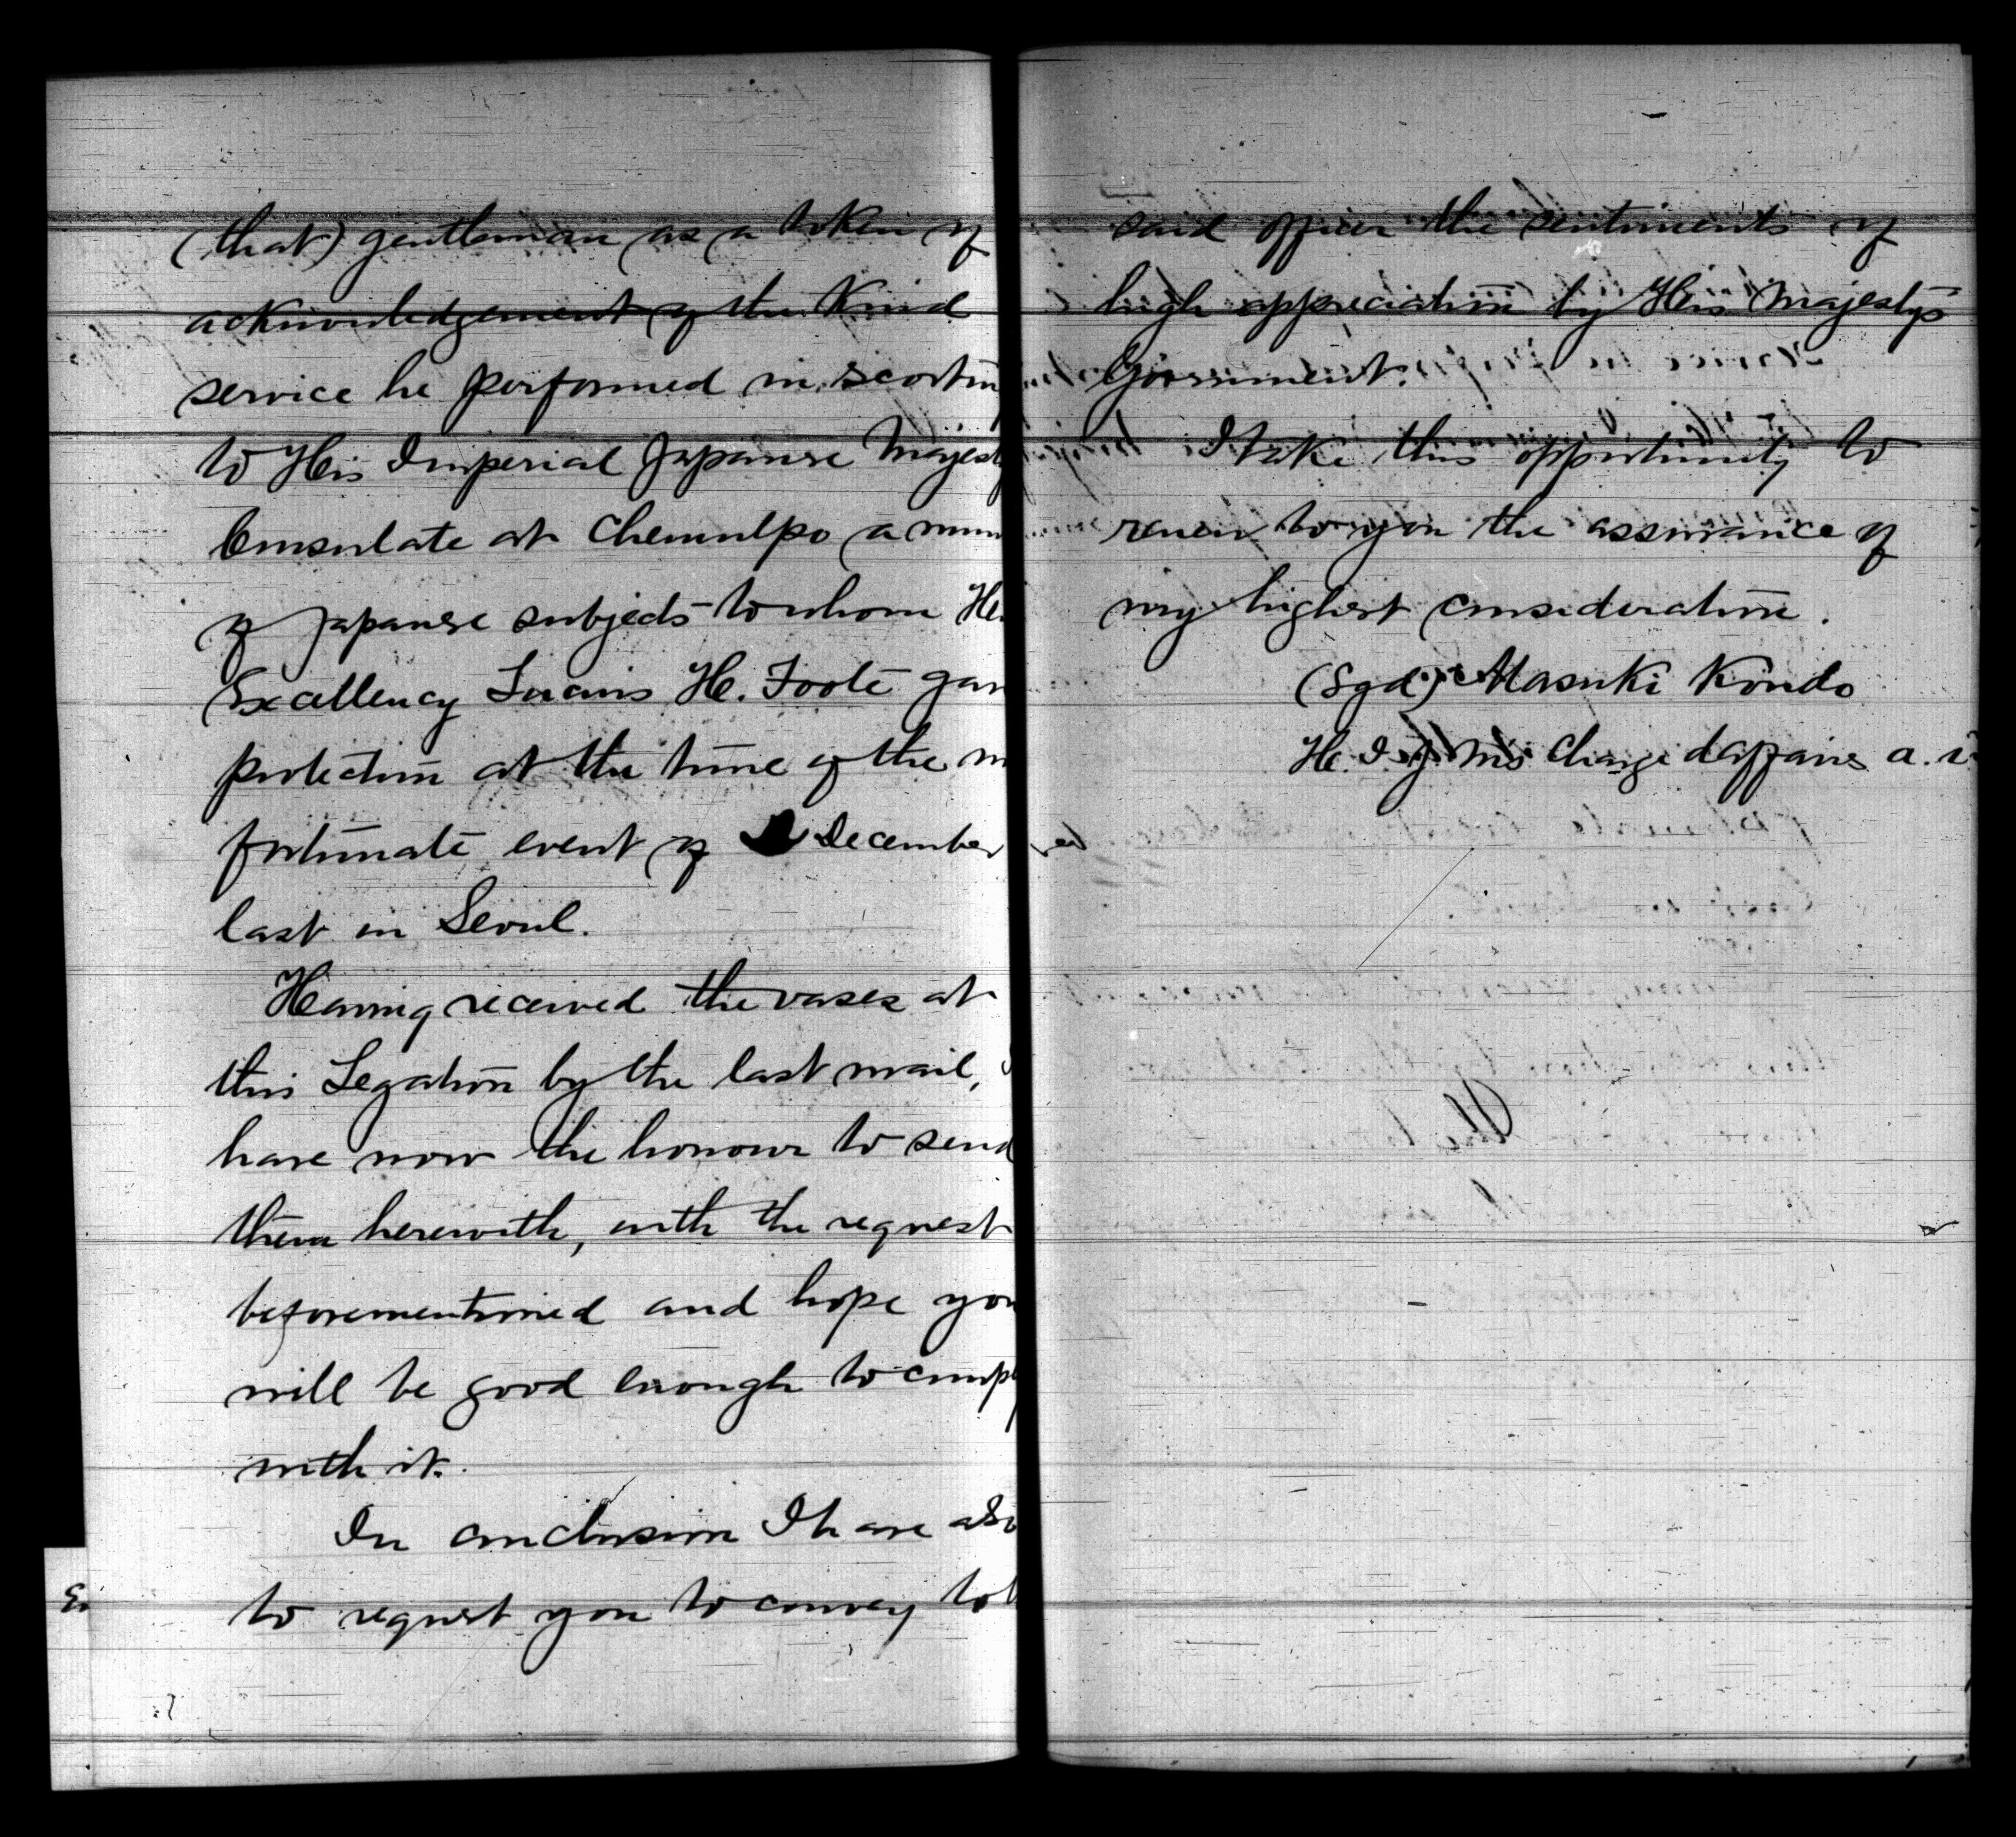 (that) gentleman as a token of
acknowledgement of the Kind
service he performed in scortin
to His Imperial Japanese Majesty
Consulate at Chemulpo a num
of Japanese subjects to whom His
Excellency Lucius H. Foote gav
protection at the time of the
fortunate event of December
last in Seoul.
Having received the vases at
this Legation by the last mail, I
have now the honour to send
them herewith, with the request
beforementioned and hope you
will be good enough to comply
with it.
In conclusion I have also
to request you to convey to
said officer the sentiments of
high appreciation by His Majesty's
Government.
I take this opportunity to
renew to you the assurance of
my highest consideration.
(Sgd) Masuki Kondo
H. I. J. M's Charge d'affaires a. i.